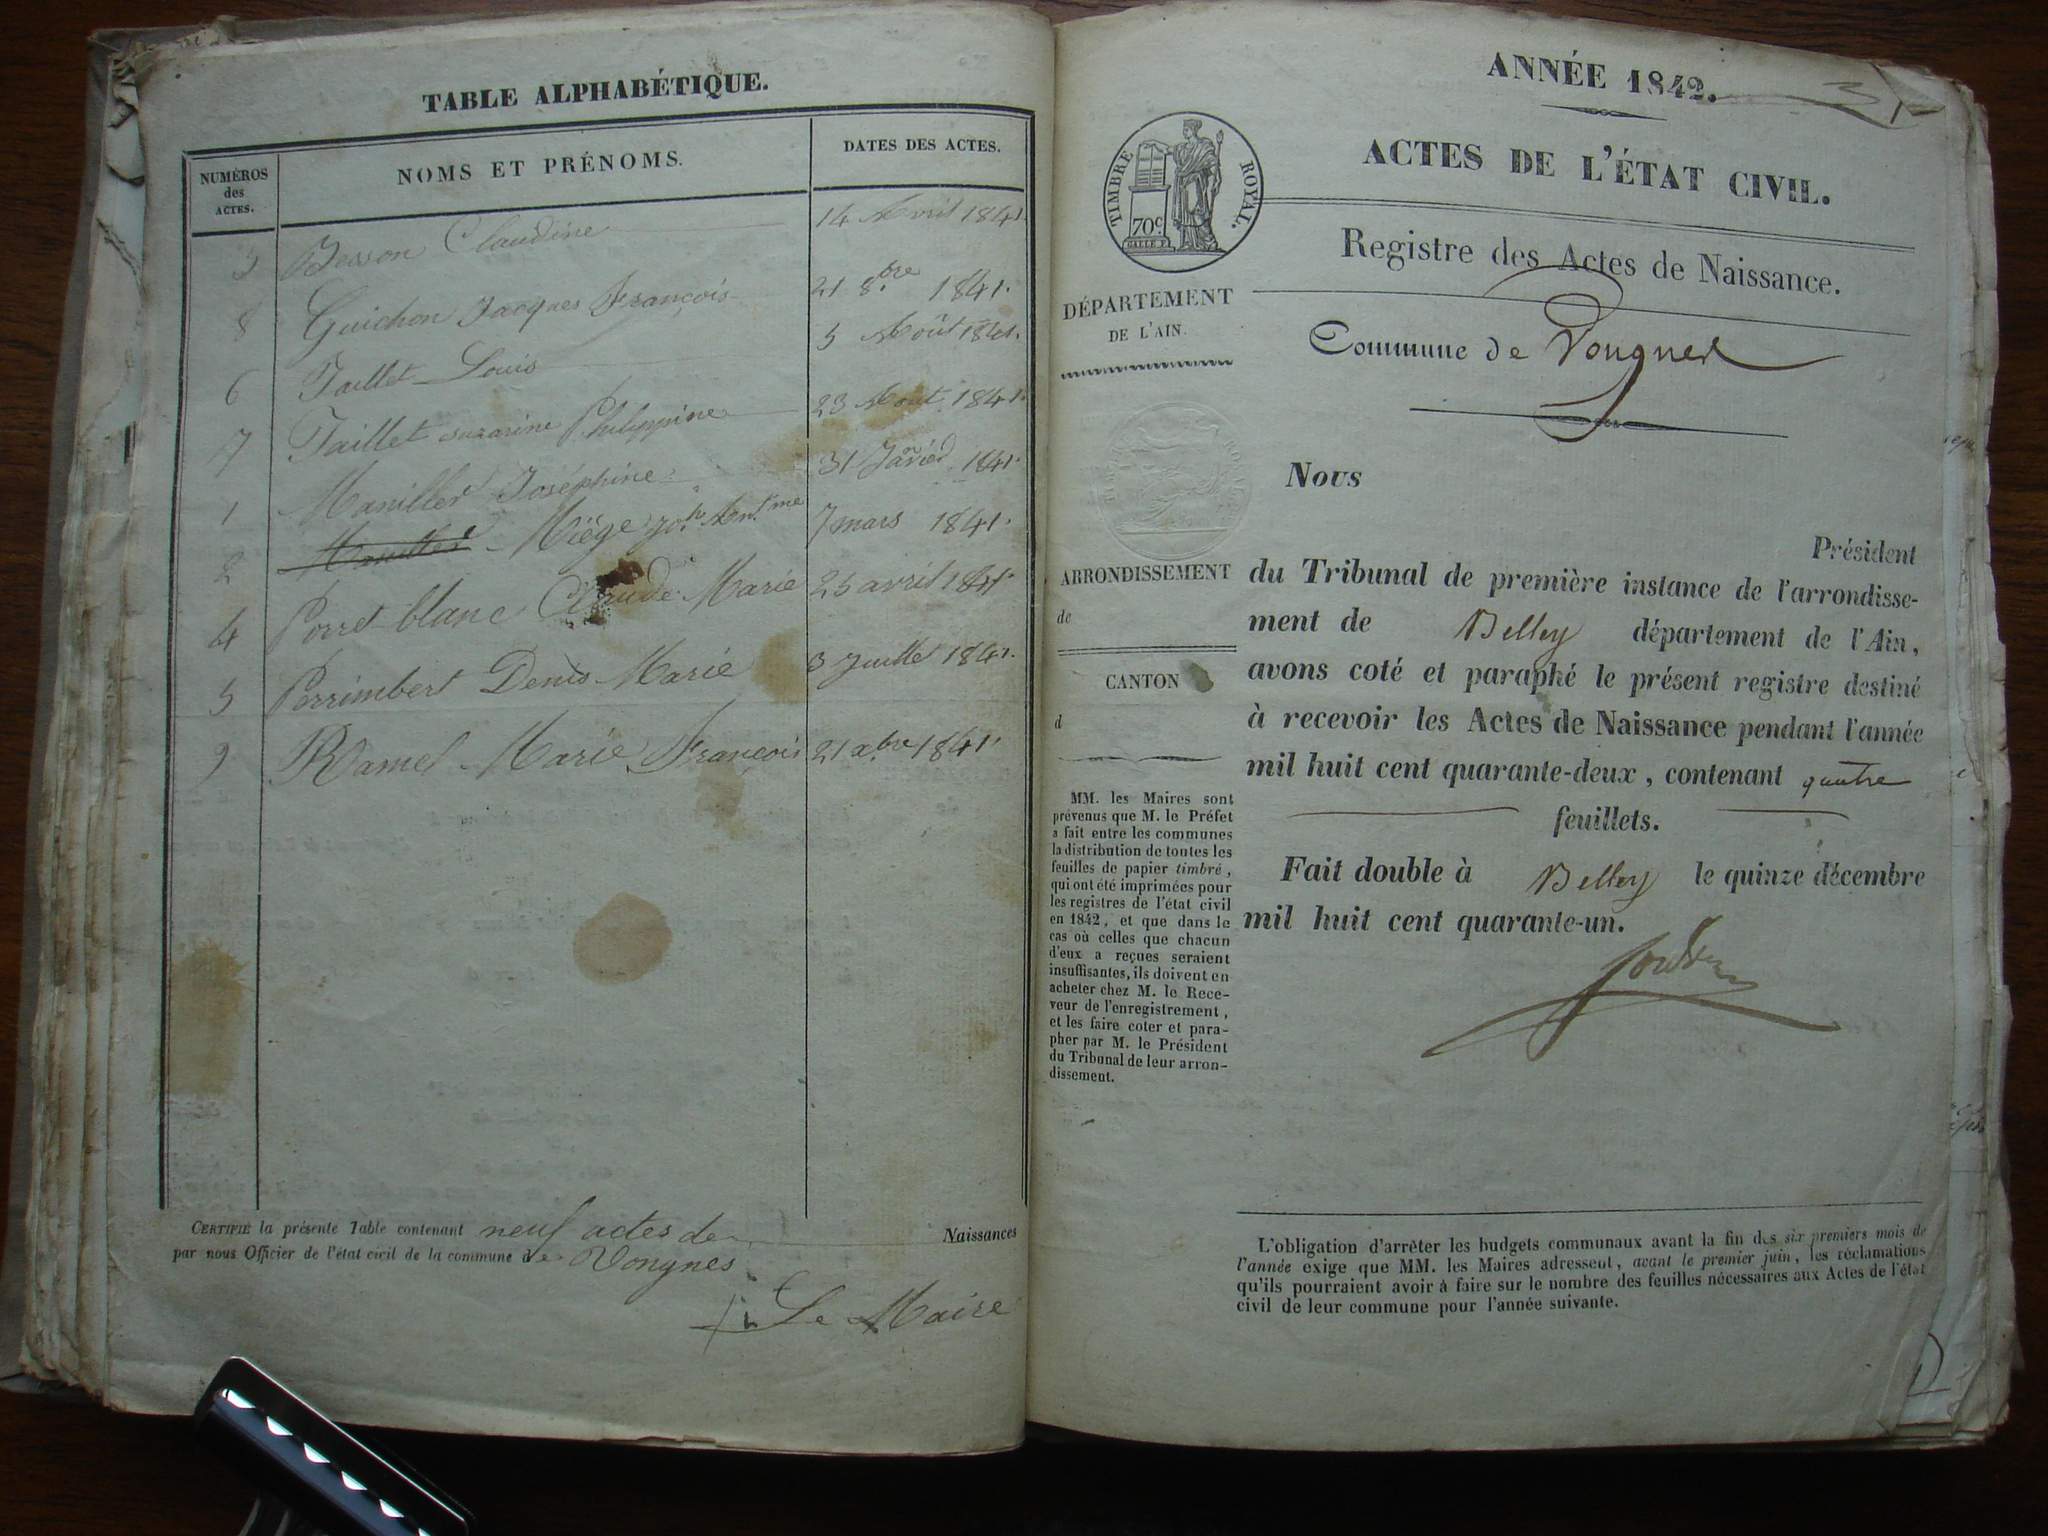 TABLE ALPHABÉTIQUE.
NUMÉROS
des
ACTES.
NOMS ET PRÉNOMS.
DATES DES ACTES.
3 Besson Claudine 14 Avril 1841.
8 Guichon Jacques François 21 8.bre 1841.
6 Taillet Louis 5 Août 1841.
7 Taillet suzanine Philippine 23 Aout 1841.
1 Maniller Joséphine 31 Janvier 1841.
2 Miège Jph Ant.me 7 mars 1841.
4 Porret-blanc Claude Marie 25 avril 1841.
5 Perrimbert Denis Marie 3 Juillet 1841.
9 Ramel Marie François 21 xbre 1841.
CERTIFIÉ la présente Table contenant neuf actes de Naissances
par nous Officier de l'état civil de la commune de Vongnes
Le Maire
ANNÉE 1842.
ACTES DE L'ÉTAT CIVIL.
TIMBRE ROYAL.
70c.
Registre des Actes de Naissance.
DÉPARTEMENT
DE L'AIN.
Commune de Vongnes
Nous
Président
du Tribunal de première instance de l'arrondisse-
ment de Belley département de l'Ain,
avons coté et paraphé le présent registre destiné
à recevoir les Actes de Naissance pendant l'année
mil huit cent quarante-deux, contenant quatre
feuillets.
Fait double à Belley le quinze décembre
mil huit cent quarante-un.
ARRONDISSEMENT
de
CANTON
d
MM. les Maires sont
prévenus que M. le Préfet
a fait entre les communes
la distribution de toutes les
feuilles de papier timbré,
qui ont été imprimées pour
les registres de l'état civil
en 1842, et que dans le
cas où celles que chacun
d'eux a reçues seraient
insuffisantes, ils doivent en
acheter chez M. le Rece-
veur de l'enregistrement,
et les faire coter et para-
pher par M. le Président
du Tribunal de leur arron-
dissement.
L'obligation d'arrêter les budgets communaux avant la fin des six premiers mois de
l'année exige que MM. les Maires adressent, avant le premier juin, les réclamations
qu'ils pourraient avoir à faire sur le nombre des feuilles nécessaires aux Actes de l'état
civil de leur commune pour l'année suivante.